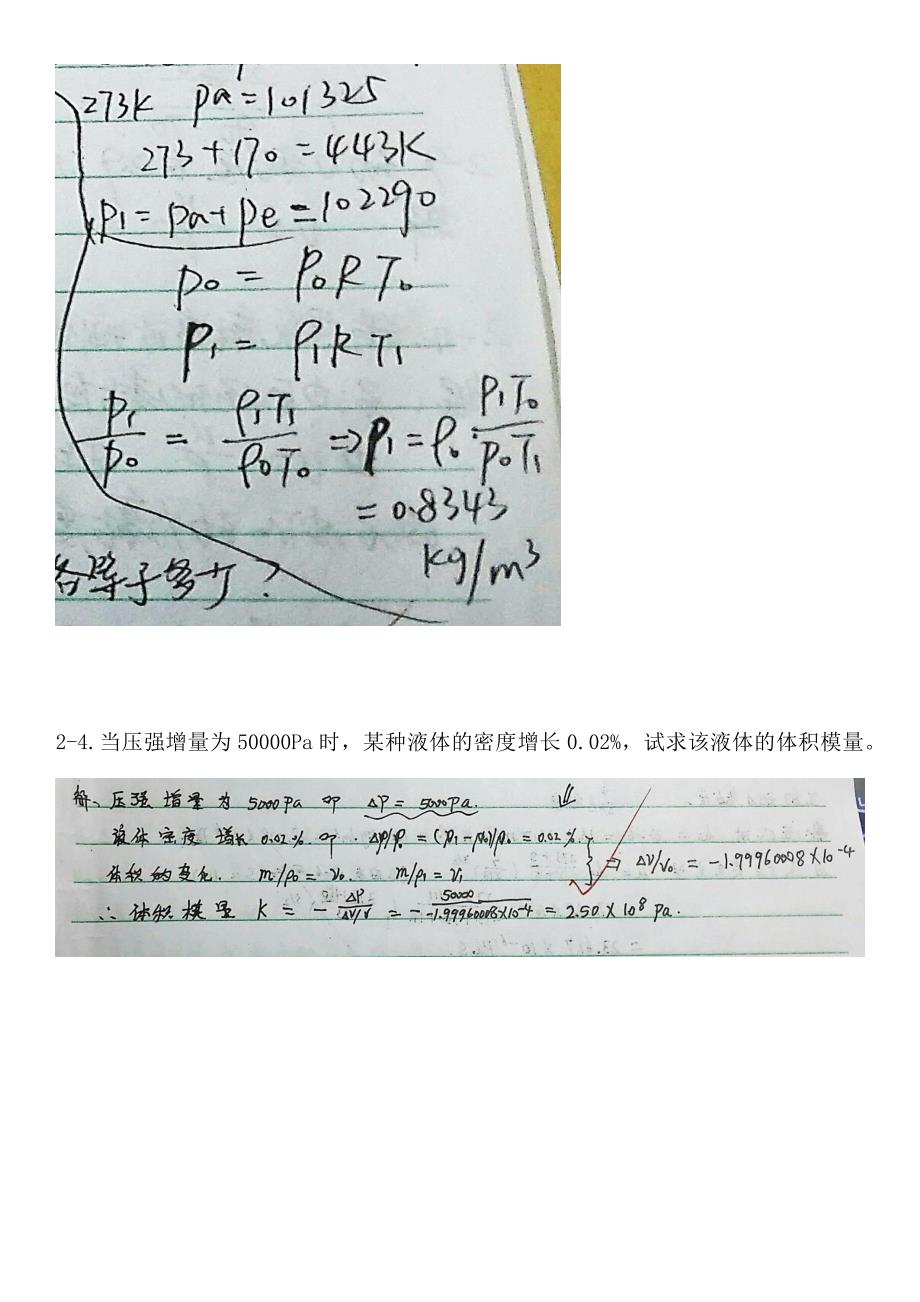 273K pa=101325
273+170=443K
p1=pa+pe=102290
p0=ρ0RT0
p1=ρ1RT1
p1/p0=ρ1T1/ρ0T0⇒ρ1=ρ0·p1T0/p0T1
=0.8343
kg/m³
各等于多少?
2-4.当压强增量为50000Pa时,某种液体的密度增长0.02%,试求该液体的体积模量。
解、压强增量为 5000Pa 即 ΔP=5000Pa.
液体密度增长0.02% 即 Δρ/ρ0=(ρ1-ρ0)/ρ0=0.02%.
体积的变化. m/ρ0=v0 m/ρ1=v1 ⇒ ΔV/V0=-1.99960008×10⁻⁴
∴体积模量 K=-ΔP/ΔV/V=-50000/-1.99960008×10⁻⁴=2.50×10⁸pa.